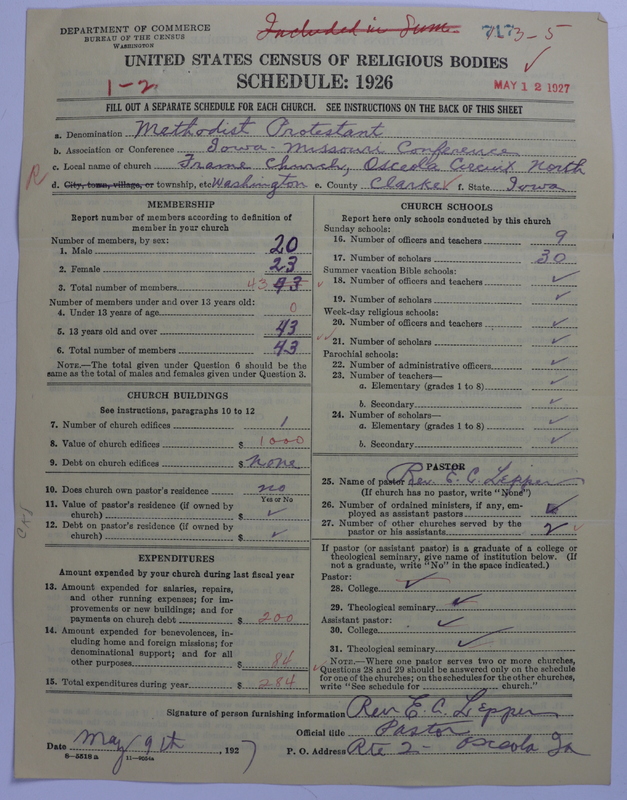 DEPARTMENT OF COMMERCE
BUREAU OF THE CENSUS
WASHINGTON
Included in Sum.
7173-5
UNITED STATES CENSUS OF RELIGIOUS BODIES
SCHEDULE: 1926
1-2
MAY 12 1927
FILL OUT A SEPARATE SCHEDULE FOR EACH CHURCH. SEE INSTRUCTIONS ON THE BACK OF THIS SHEET
a. Denomination Methodist Protestant
b. Association or Conference Iowa-Missouri Conference
c. Local name of church Frame Church, Osceola Circuit North
R
d. City, town, village, or township, etc. Washington e. County Clarke f. State Iowa
MEMBERSHIP
Report number of members according to definition of
member in your church
Number of members, by sex:
1. Male 20
2. Female 23
3. Total number of members 43 43
Number of members under and over 13 years old:
4. Under 13 years of age 0
5. 13 years old and over 43
6. Total number of members 43
NOTE.—The total given under Question 6 should be
same as the total of males and females given under Question 3.
CHURCH BUILDINGS
See instructions, paragraphs 10 to 12
7. Number of church edifices 1
8. Value of church edifices $ 1000
9. Debt on church edifices $ None
10. Does church own pastor's residence no
Yes or No
11. Value of pastor's residence (if owned by
church) $ ✓
12. Debt on pastor's residence (if owned by
church) $ ✓
CKI
EXPENDITURES
Amount expended by your church during last fiscal year
13. Amount expended for salaries, repairs,
and other running expenses; for im-
provements or new buildings; and for
payments on church debt $ 200
14. Amount expended for benevolences, in-
cluding home and foreign missions; for
denominational support; and for all
other purposes $ 84
15. Total expenditures during year $ 284
CHURCH SCHOOLS
Report here only schools conducted by this church
Sunday schools:
16. Number of officers and teachers 9
17. Number of scholars 30
Summer vacation Bible schools:
18. Number of officers and teachers ✓
19. Number of scholars ✓
Week-day religious schools:
20. Number of officers and teachers ✓
21. Number of scholars ✓
Parochial schools:
22. Number of administrative officers ✓
23. Number of teachers—
a. Elementary (grades 1 to 8) ✓
b. Secondary ✓
24. Number of scholars—
a. Elementary (grades 1 to 8) ✓
b. Secondary ✓
PASTOR
25. Name of pastor Rev. E. C. Lepper
(If church has no pastor, write "None")
26. Number of ordained ministers, if any, em-
ployed as assistant pastors ✓
27. Number of other churches served by the
pastor or his assistants 2
If pastor (or assistant pastor) is a graduate of a college or
theological seminary, give name of institution below. (If
not a graduate, write "No" in the space indicated.)
Pastor:
28. College ✓
29. Theological seminary ✓
Assistant pastor:
30. College ✓
31. Theological seminary ✓
NOTE.—Where one pastor serves two or more churches,
Questions 28 and 29 should be answered only on the schedule
for one of the churches; on the schedules for the other churches,
write "See schedule for church."
Signature of person furnishing information Rev E. C. Lepper
Official title Pastor
Date May 9th, 1927
P. O. Address Rte 2 - Osceola Ia
8-5518 a